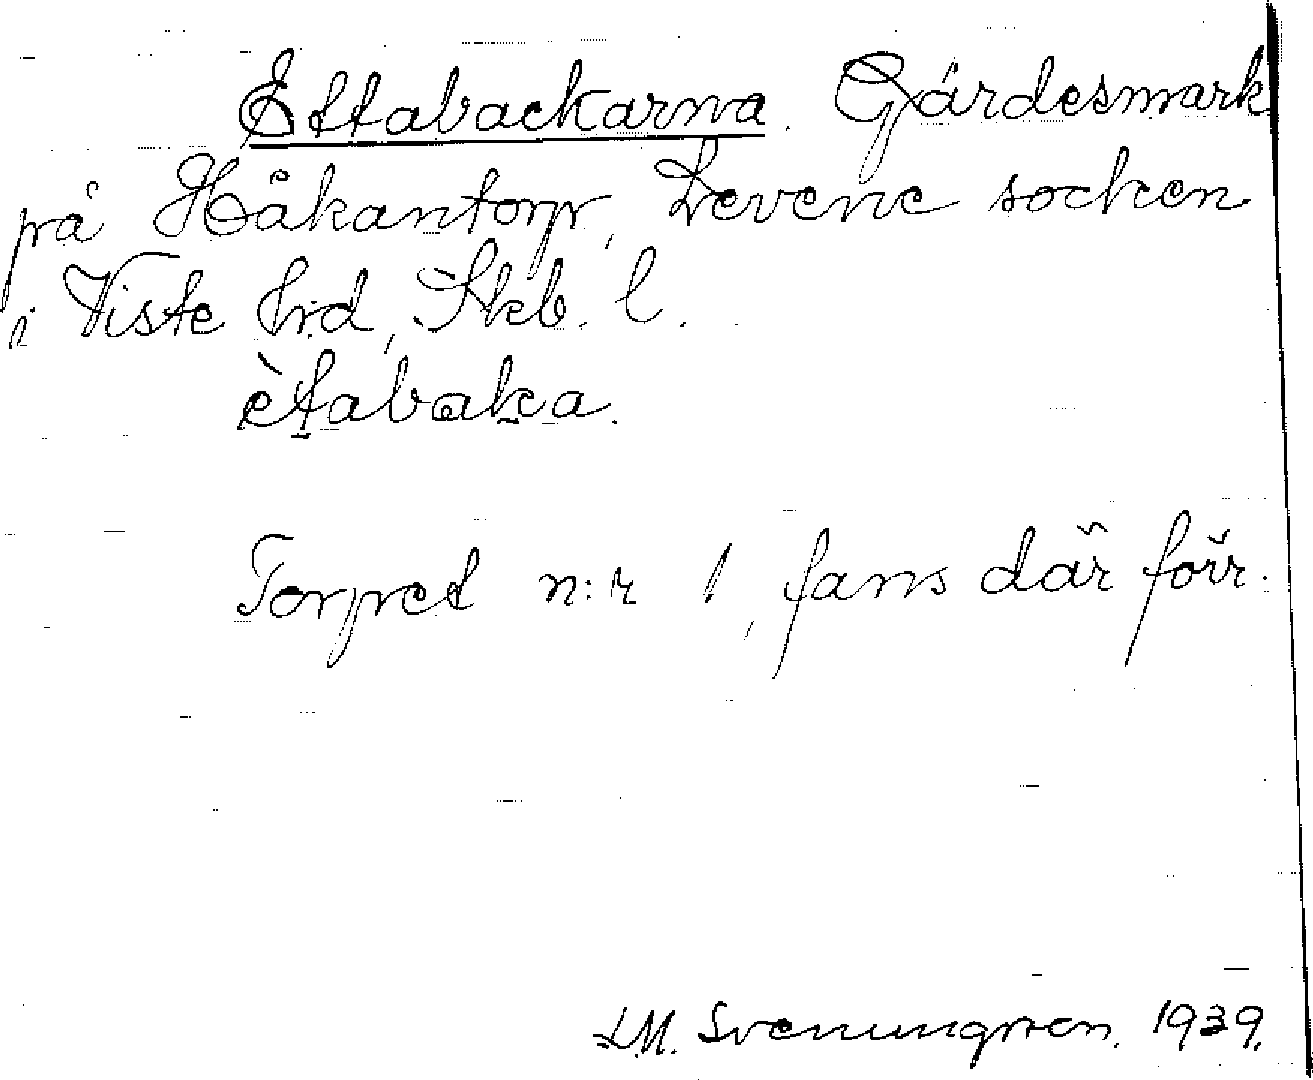 Ettabackarna. Gärdesmark
på Håkantorp, Levene socken
i Viste hrd, Skb. l.
ètabaka.
Torpet n:r 1, fans där förr.
L.M. Svenungsson. 1939.